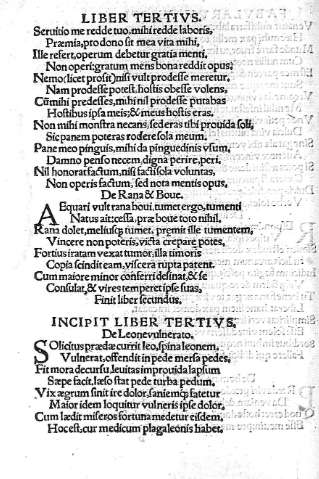 LIBER TERTIVS.
Seruitio me redde tuo, mihi redde laboris,
Præmia, pro dono sit mea vita mihi,
Ille refert, operum debetur gratia menti,
Non operi: gratum mens bona reddit opus;
Nemo (licet prosit) nisi vult prodesse meretur,
Nam prodesse potest. hostis obesse volens,
Cū mihi prodesses, mihi nil prodesse putabas
Hostibus ipsa meis; & meus hostis eras.
Non mihi monstra necans, sed eras tibi prouida soli,
Sic panem poteras rodere sola meum,
Pane meo pinguis, mihi da pinguedinis vsum,
Damno penso necem, digna perire, peri.
Nil honorat factum, nisi facti sola voluntas,
Non operis factum, sed nota mentis opus.
De Rana & Boue.
AEquari vult rana boui, tumet ergo, tumenti
Natus ait: cessa, præ boue toto nihil.
Rana dolet, meliusq; tumet. premit ille tumentem,
Vincere non poteris, victa crepare potes,
Fortius iratam vexat tumor, illa timoris
Copia scindit eam, viscera rupta patent.
Cum maiore minor conferri desinat, & se
Consulat, & vires temperet ipse suas,
Finit liber secundus.
INCIPIT LIBER TERTIVS.
De Leone vulnerato.
SOlicitus prædæ currit leo, spina leonem,
Vulnerat, offendit in pede mersa pedes,
Fit mora decursu, leuitas improuida lapsum
Sæpe facit, læso stat pede turba pedum,
Vix ægrum sinit ire dolor, saniemq; fatetur
Maior idem loquitur vulneris ipse dolor.
Cum lædit miseros fortuna medetur eisdem,
Hoc est, cur medicum plaga leonis habet.